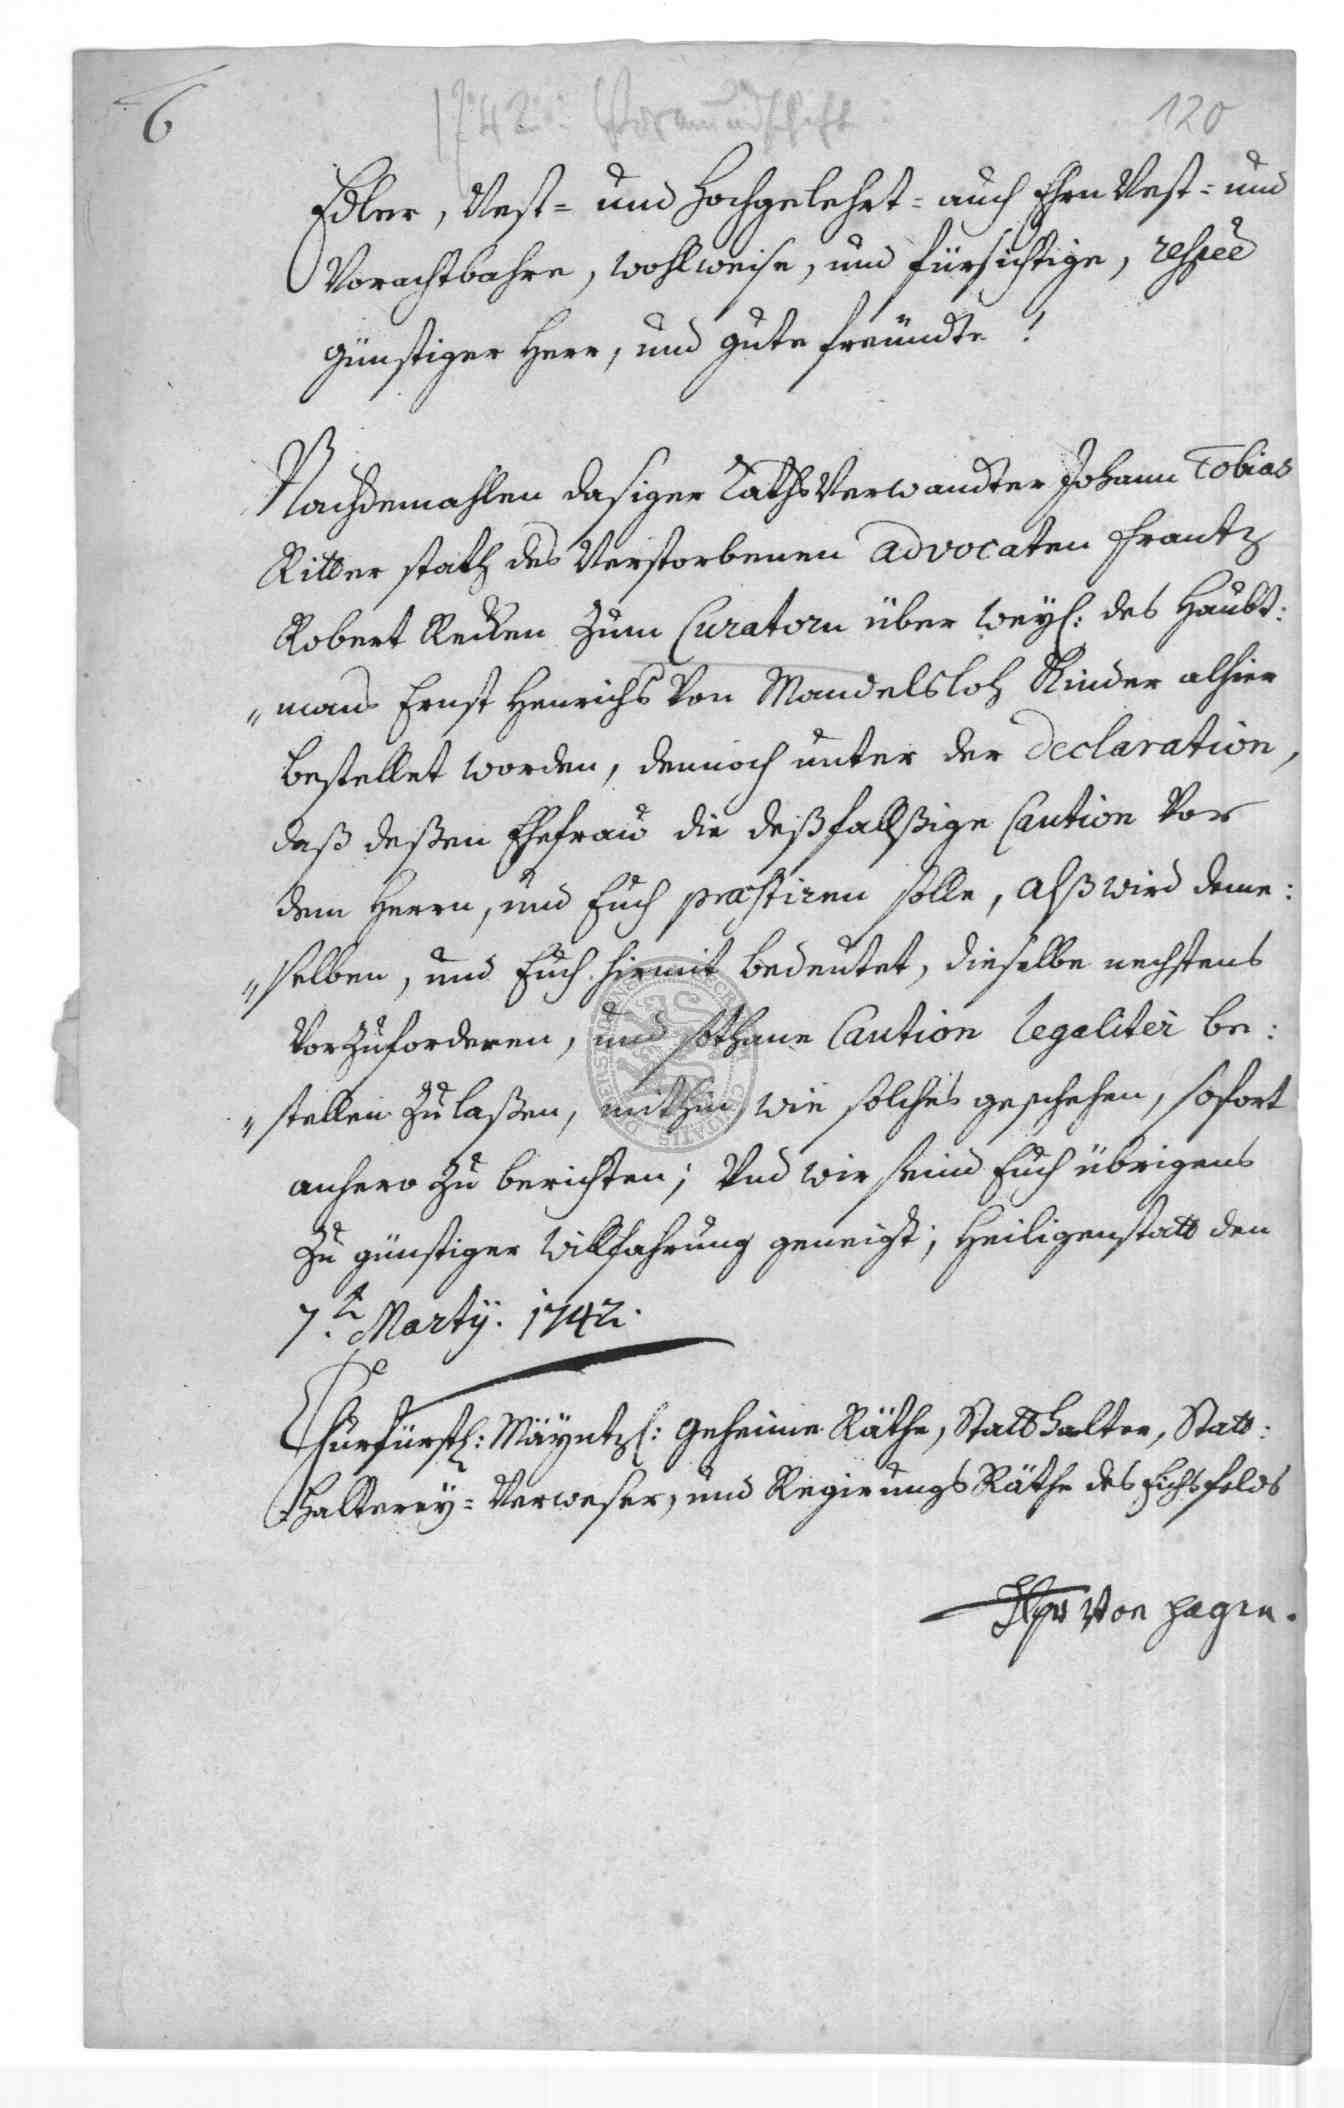 6
1742. Vormundschaft
120
Edler, Vest= und Hochgelehrt= auch Ehrn Vest= und
Vorachtbahre, wohlweise, und fürsichtige, respée
günstiger Herr, und gute freündte!
Nachdemahlen dasiger RathsVerwandter Johann Tobias
Ritter stath des Verstorbenen advocaten Frantz
Robert Recken zum Curatorn über weyl: des Haubt:
"mans Ernst Henrichs Von Mandelsloh Kinder alhier
bestellet worden, dennoch unter der declaration,
daß deßen Ehefrau die deßfallßige Caution Vor
dem Herrn, und Euch præstiren solle, Alß wird deme:
"selben, und Euch hirmit bedeutet, dieselbe nechstens
Vorzuforderen, und sothane Caution legaliter be:
"stellen zu laßen, mithin wie solches geschehen, sofort
anhero zu berichten; Und wir seind Euch übrigens
zu günstiger Willfahrung geneigt; Heiligenstatt den
7. Martÿ. 1742.
Churfürstl: Mäyntzl: Geheime Räthe, Statthalter, Statt:
halterey= Verweser, und RegirungsRäthe des Eichsfelds
Von Hagen.